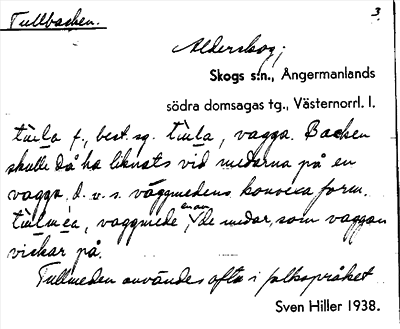 Tullbacken.
3.
Alderskog;
Skogs s:n., Ångermanlands
södra domsagas tg., Västernorrl. l.
tùlla f., best. sg. tùlla, vagga. Backen
skulle då ha liknats vid medarna på en
vagga, d. v. s. väggmedens konvexa form.
vaggmede, en av de medar, som vaggan
vickar på.
Tullmeden användes ofta i folkspråket
Sven Hiller 1938.